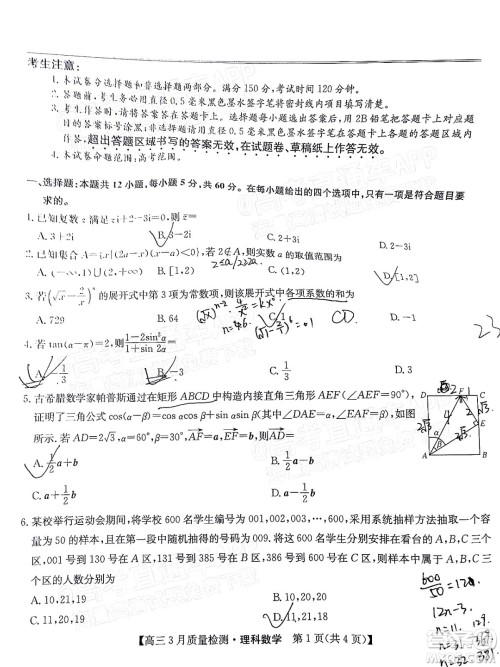 考生注意:
1. 本试卷分选择题和非选择题两部分。满分150分,考试时间120分钟。
2. 答题前,考生务必用直径0.5毫米黑色墨水签字笔将密封线内项目填写清楚。
3. 考生作答时,请将答案答在答题卡上。选择题每小题选出答案后,用2B铅笔把答题卡上对应题目的答案标号涂黑;非选择题请用直径0.5毫米黑色墨水签字笔在答题卡上各题的答题区域内作答,超出答题区域书写的答案无效,在试题卷、草稿纸上作答无效。
4. 本试卷命题范围:高考范围。
一、选择题:本题共12小题,每小题5分,共60分。在每小题给出的四个选项中,只有一项是符合题目要求的。
1. 已知复数z满足z+i=3-2i
A. 3+i
B. 3-2i
C. 3+3i
D. 2-3i
2. 已知集合A={x|(2a-x)(x-a)<0},若2∉A,则实数a的取值范围为
B. [1,2)
2≤a/2≥2a
D. [1,2]
3. 的展开式中第3项为常数项,则该展开式中各项系数的和为
A. 729
B. 64
n=6
CD.
23
4. 若tan(α-π)=2,则(1-2sin²α)/(1+sin 2α)=
A. -1/3
B. -3
C. 1/3
D. 3
5. 古希腊数学家帕普斯通过在矩形ABCD中构造内接直角三角形AEF(∠AEF=90°),证明了三角公式cos(α-β)=cos αcos β+sin αsin β(其中∠DAE=α,∠EAF=β),如图所示.若AD=2√3,α=60°,β=30°,AF=a,EF=b,则AB=
A. 1/2a+b
B. a+b
C. a+1/2b
D. 1/2a+1/2b
D F C
E
A B
α
β
2√3
6. 某校举行运动会期间,将学校600名学生编号为001,002,003,…,600,采用系统抽样方法抽取一个容量为50的样本,且在第一段中随机抽得的号码为009.将这600名学生分别安排在看台的三个区,001号到130号在A区,131号到385号在B区,386号到600号在C区,则样本中属于A,B,C三个区的人数分别为
A. 10,21,19
B. 10,20,20
C. 11,20,19
D. 11,21,18
600/50=12
12n-3
n=11 129
n=32 381
【高三3月质量检测·理科数学 第1页(共4页)】